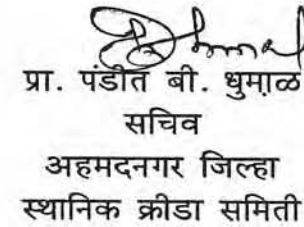 प्रा. पंडीत बी. धुमाळ
सचिव
अहमदनगर जिल्हा
स्थानिक क्रीडा समिती